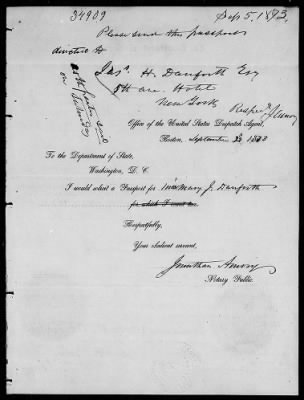 34909
Sep 5. 1873.
Please send this passport
direct to
Jas. H. Danforth Esq
5th ave. Hotel
New York
Respy J Amory
Office of the United States Dispatch Agent,
Boston, September 1873
To the Department of State,
Washington, D. C.
I would want a Passport for Henry J. Danforth
for which I
Respectfully,
Your obedient servant,
Jonathan Amory
Notary Public.